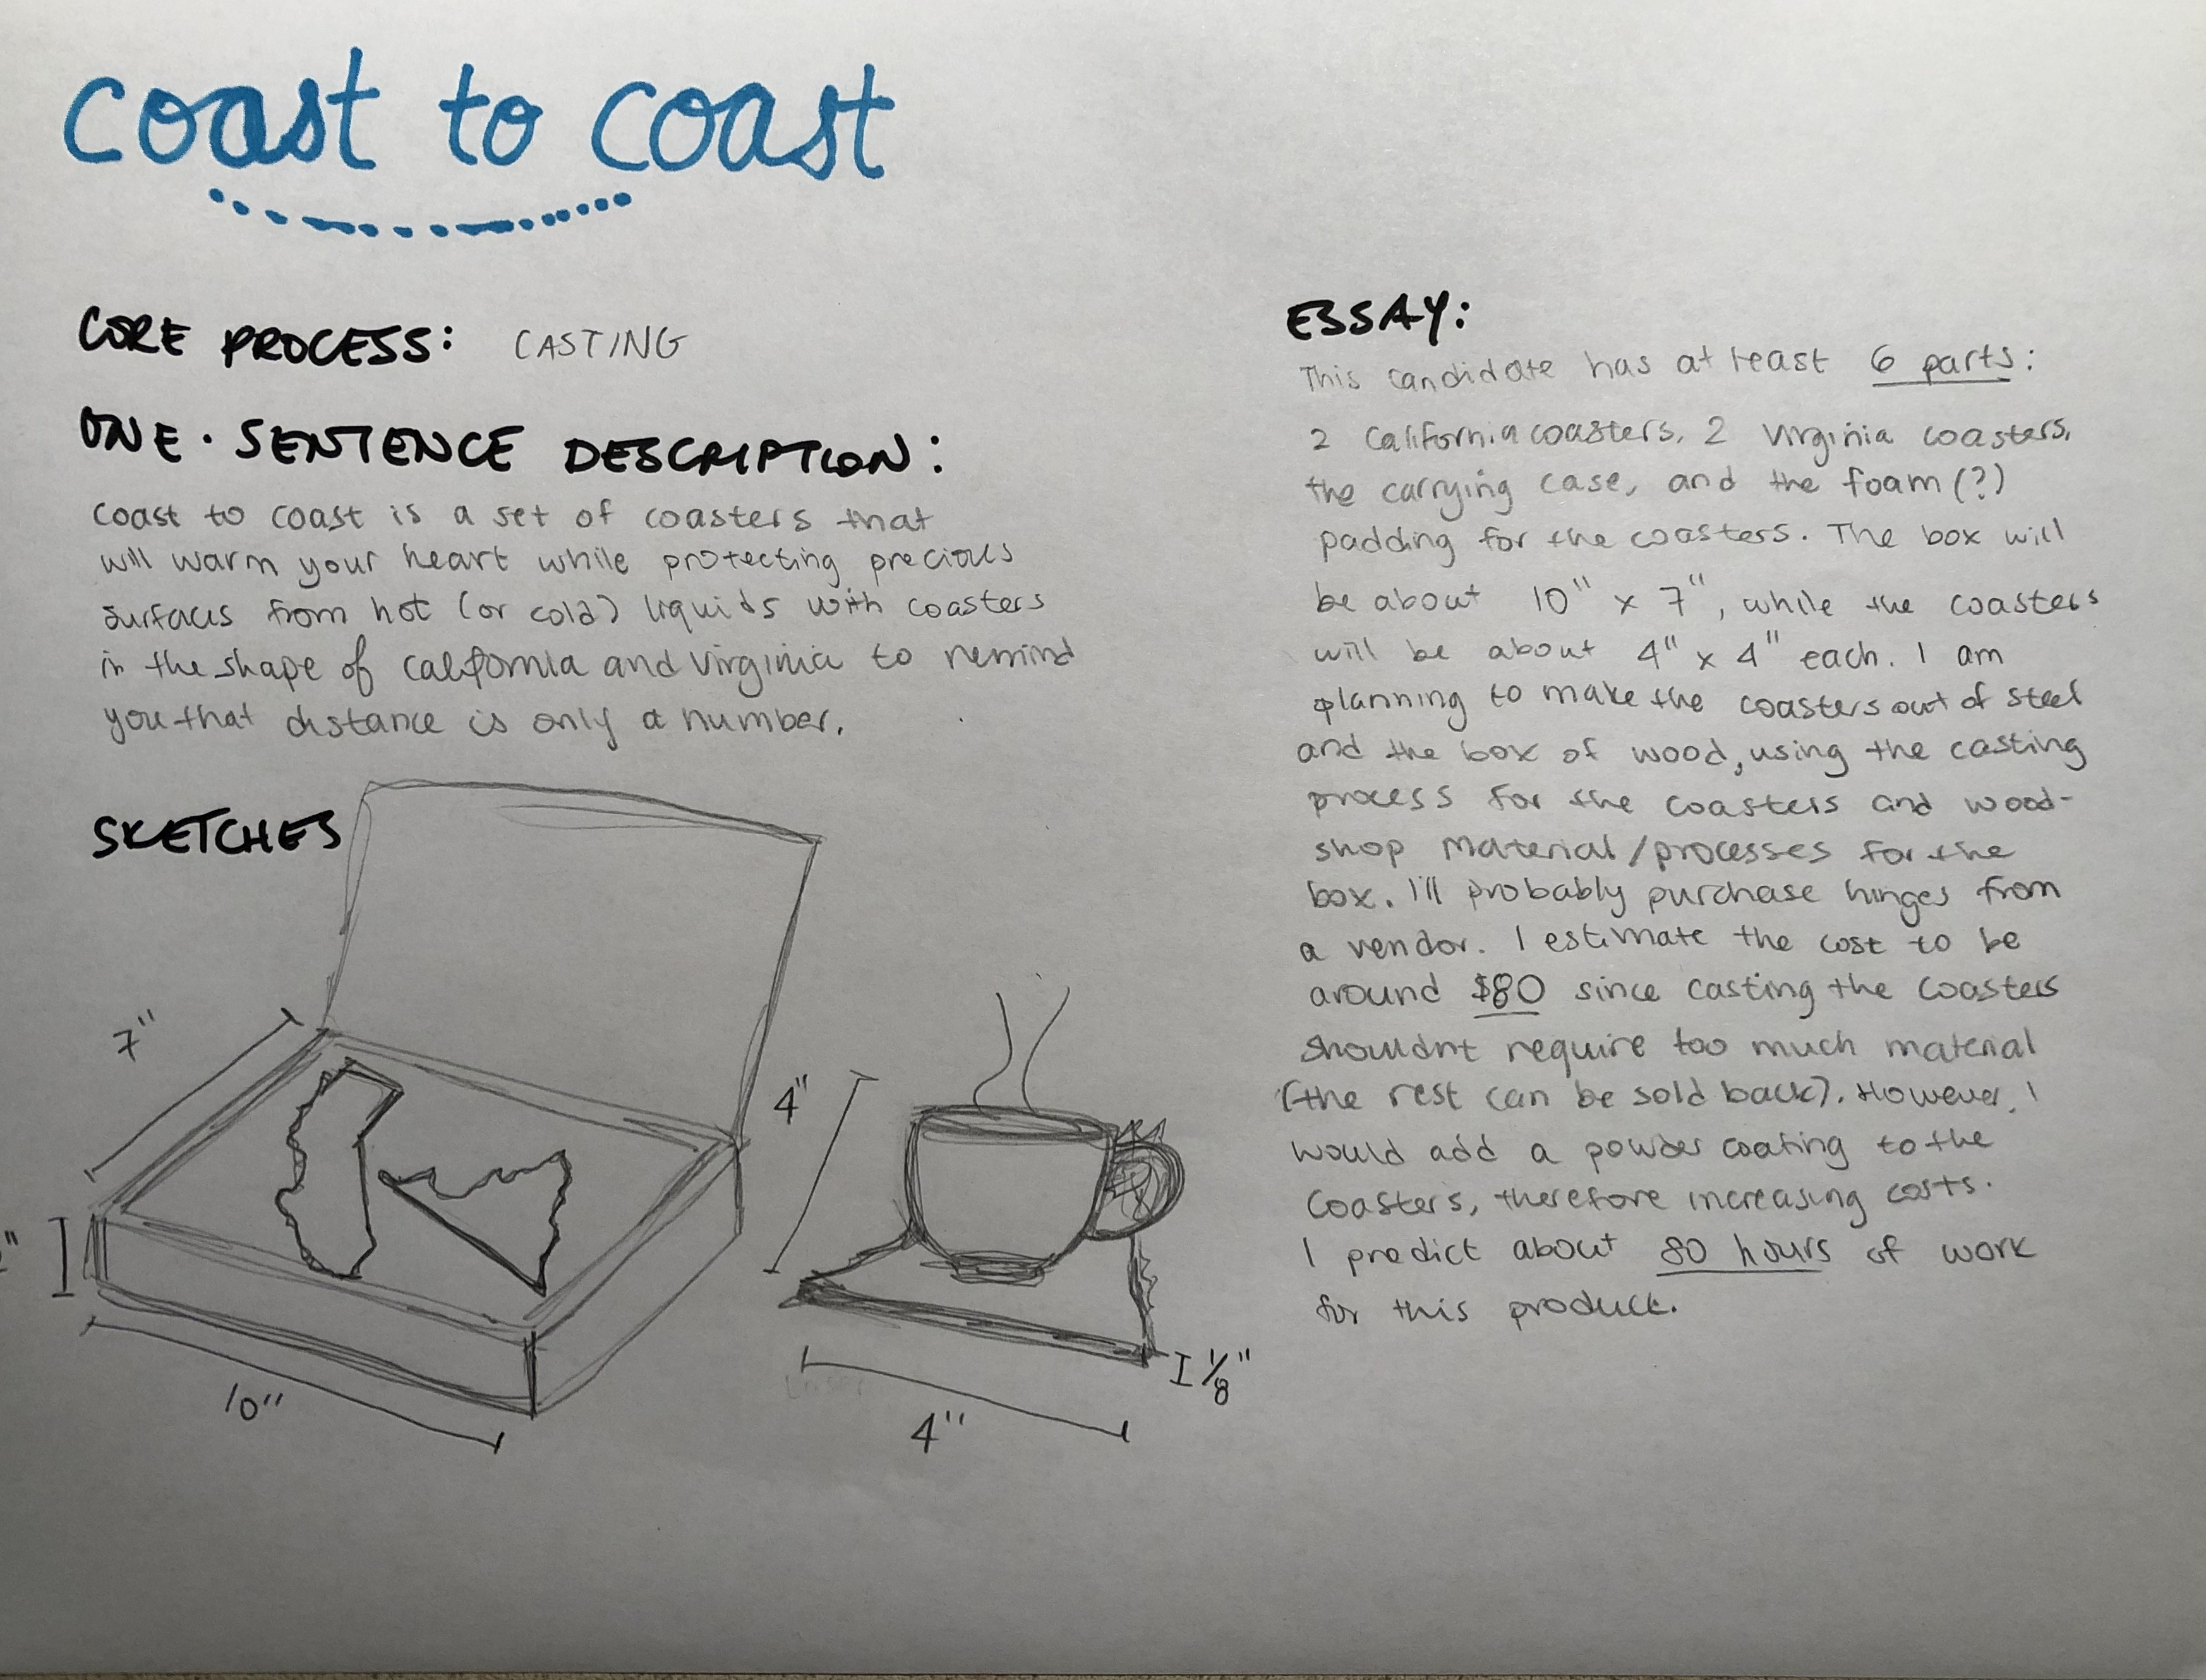 coast to coast
CORE PROCESS: CASTING
ONE. SENTENCE DESCRIPTION:
coast to coast is a set of coasters that
will warm your heart while protecting precious
surfaces from hot (or cold) liquids with coasters
in the shape of california and virginia to remind
you that distance is only a number.
SKETCHES
7"
"
10"
4"
4"
1/8"
ESSAY:
This candidate has at least 6 parts:
2 California coasters, 2 Virginia coasters,
the carrying case, and the foam (?)
padding for the coasters. The box will
be about 10" x 7", while the coasters
will be about 4" x 4" each. I am
planning to make the coasters out of steel
and the box of wood, using the casting
process for the coasters and wood-
shop material/processes for the
box. I'll probably purchase hinges from
a vendor. I estimate the cost to be
around $80 since casting the coasters
shouldnt require too much material
(the rest can be sold back). However, I
would add a powder coating to the
coasters, therefore increasing costs.
I predict about 80 hours of work
for this product.